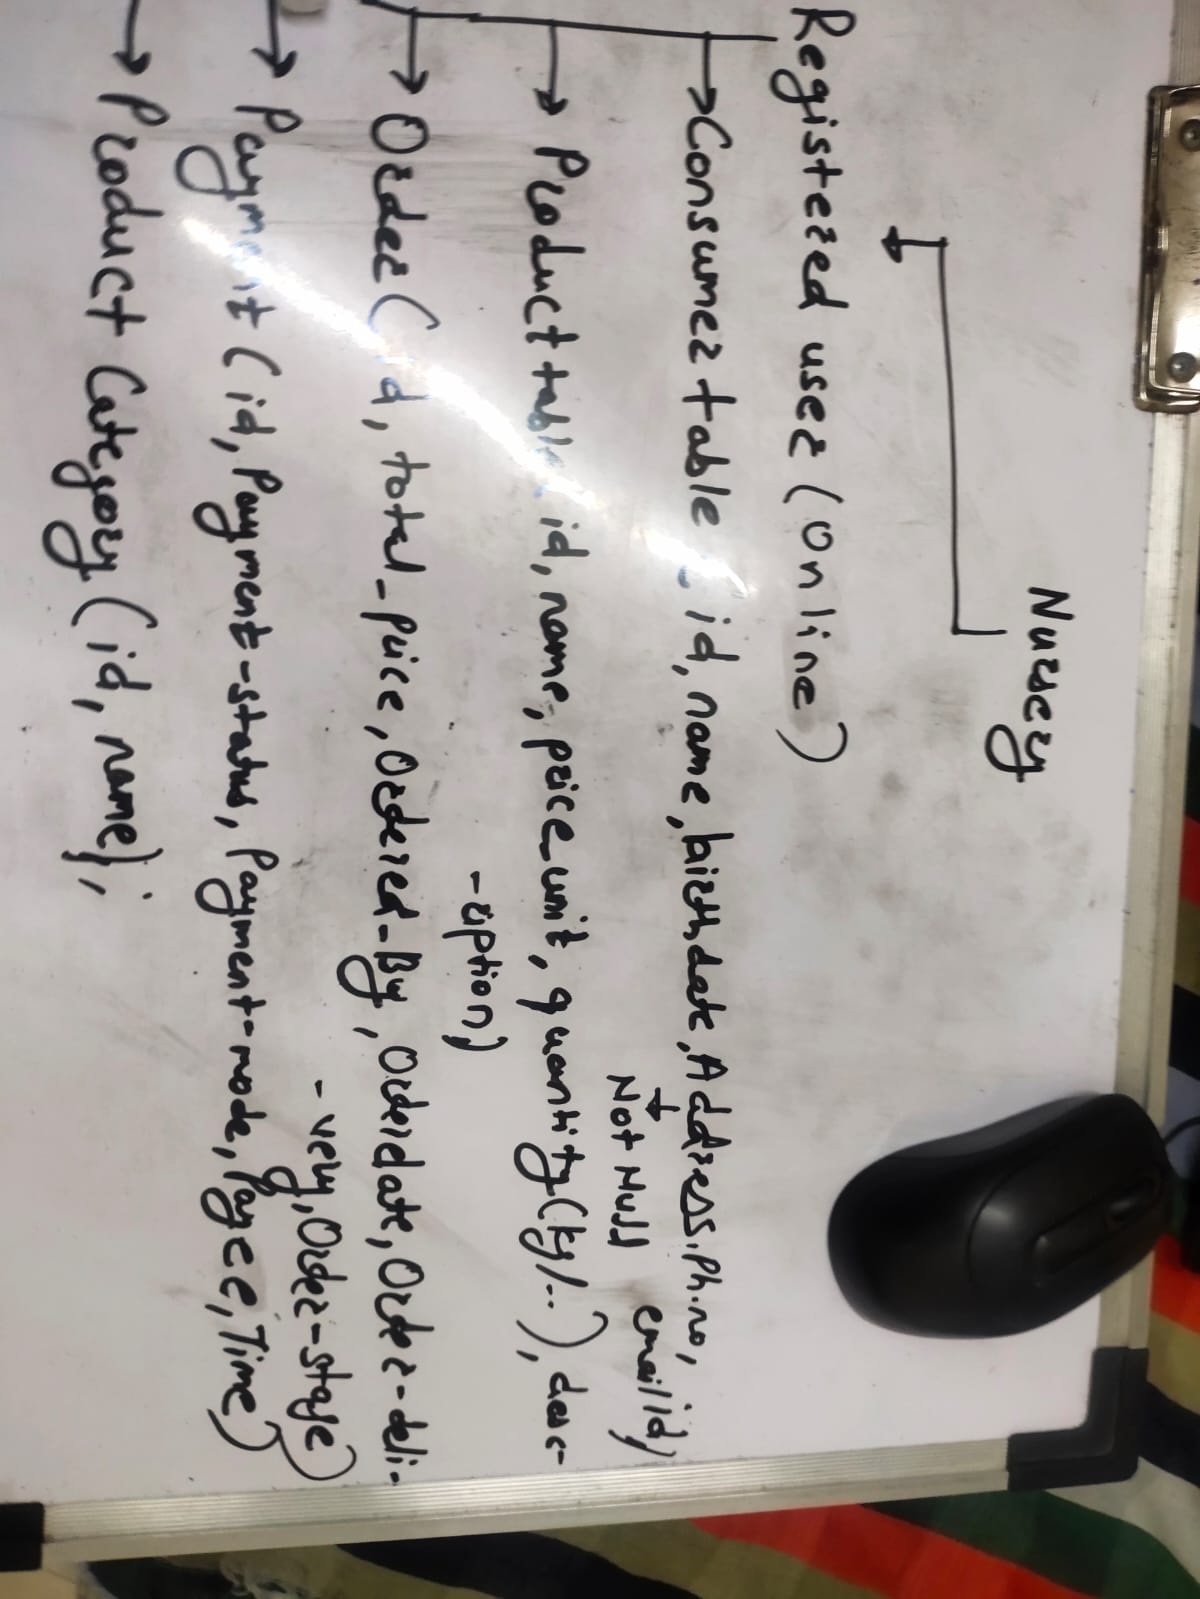 Nursery
Registered user (Online)
Consumer table ( id, name, birthdate, Address, Ph.no,
Not Null emailid)
Product table ( id, name, price_unit, quantity(kg/..), desc-
-ription)
Order ( id, total_price, Ordered_By, Orderdate, Order-deli-
-very, Order-stage)
Payment ( id, Payment-status, Payment-mode, Payee, Time)
Product Category (id, name);